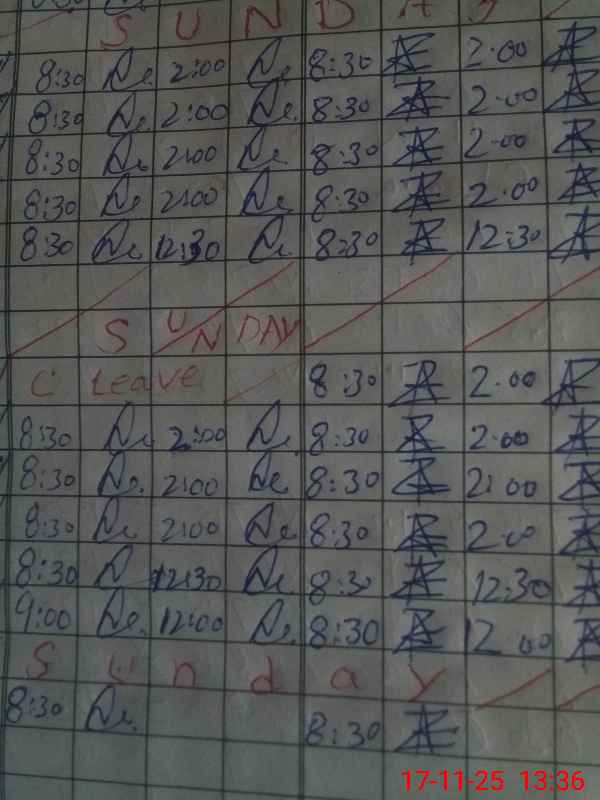 S U N D A Y
8:30 2:00 8:30 2.00
8:30 2:00 8:30 2.00
8:30 2:00 8:30 2.00
8:30 2:00 8:30 2.00
8:30 12:30 8:30 12:30
S U N DAY
C Leave 8:30 2.00
8:30 2:00 8:30 2.00
8:30 2:00 8:30 2:00
8:30 2:00 8:30 2.00
8:30 12:30 8:30 12:30
9:00 12:00 8:30 12 00
S u n d a y
8:30 8:30
17-11-25 13:36